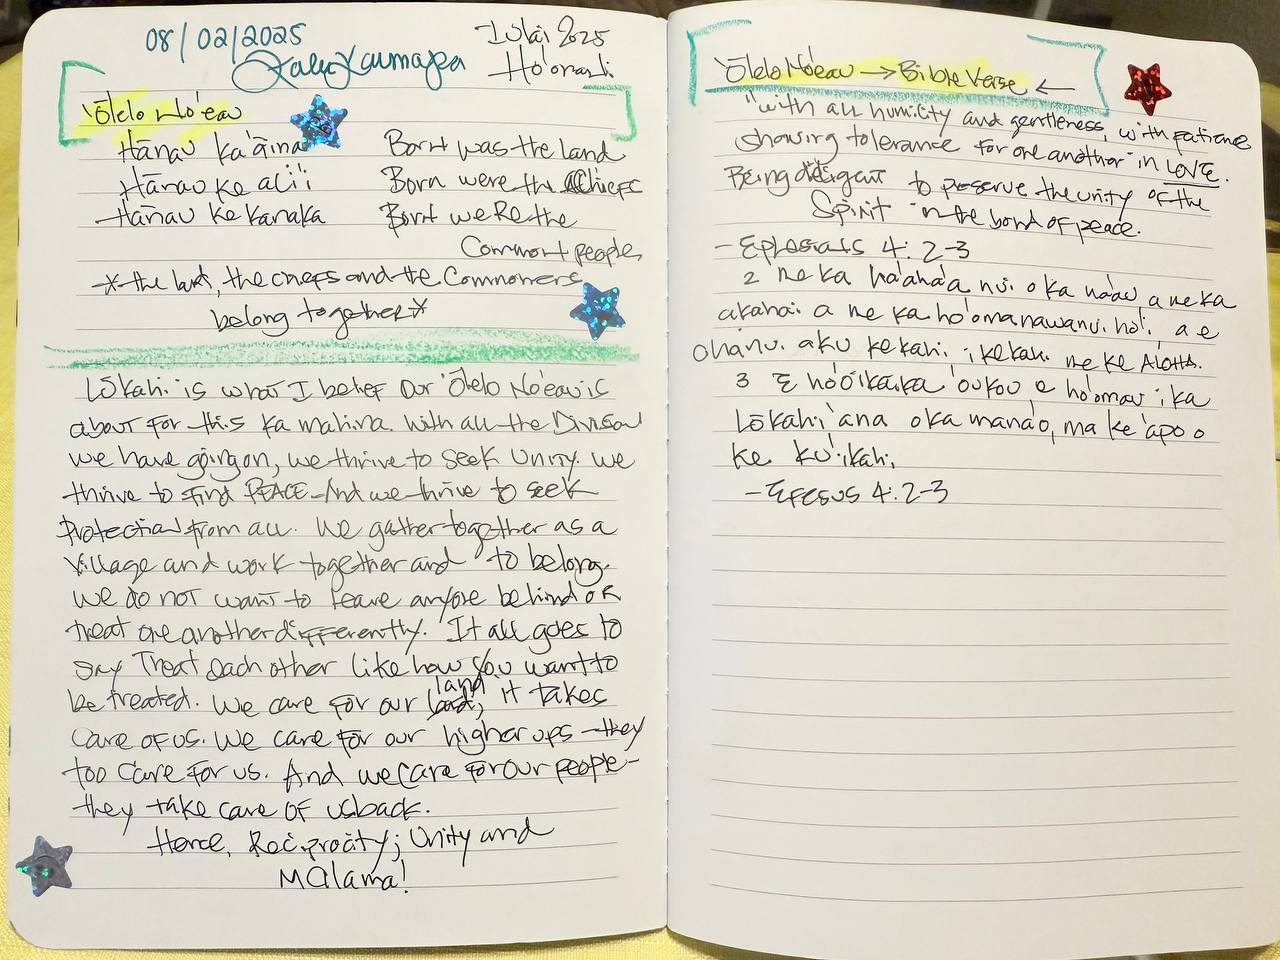 08/02/2025
Iulai 2025
'Ōlelo No'eau
Hānau ka 'āina Born was the land
Hānau ke ali'i Born were the Chiefs
Hānau ke kanaka Born were the
Common people
*the land, the chiefs and the Commoners
belong together*
Lōkahi is what I belief our 'Ōlelo No'eau is
about for this ka mahina. With all the Division
we have going on, we thrive to seek Unity. We
thrive to find PEACE. And we thrive to seek
Protection from all. We gather together as a
Village and work together and to belong.
We do not want to leave anyone behind or
treat one another differently. It all goes to
say Treat each other like how you want to
be treated. We care for our land, it takes
care of us. We care for our higher ups - they
too care for us. And we care for our people -
they take care of us back.
Hence, Reciprocity; Unity and
Mālama!
'Ōlelo No'eau → Bible Verse ←
"with all humility and gentleness, with patience
showing tolerance for one another in LOVE.
Being diligent to preserve the unity of the
Spirit in the bond of peace.
- Ephesians 4:2-3
2 me ka ha'aha'a nui o ka na'au, a me ka
akahai a me ka ho'omanawanui ho'i, a e
ahonui aku kekahi i kekahi me ke ALOHA.
3 E ho'oikaika 'oukou e ho'omau i ka
Lōkahi 'ana o ka mana'o, ma ke 'apo o
ke ku'ikahi.
- Efesus 4:2-3